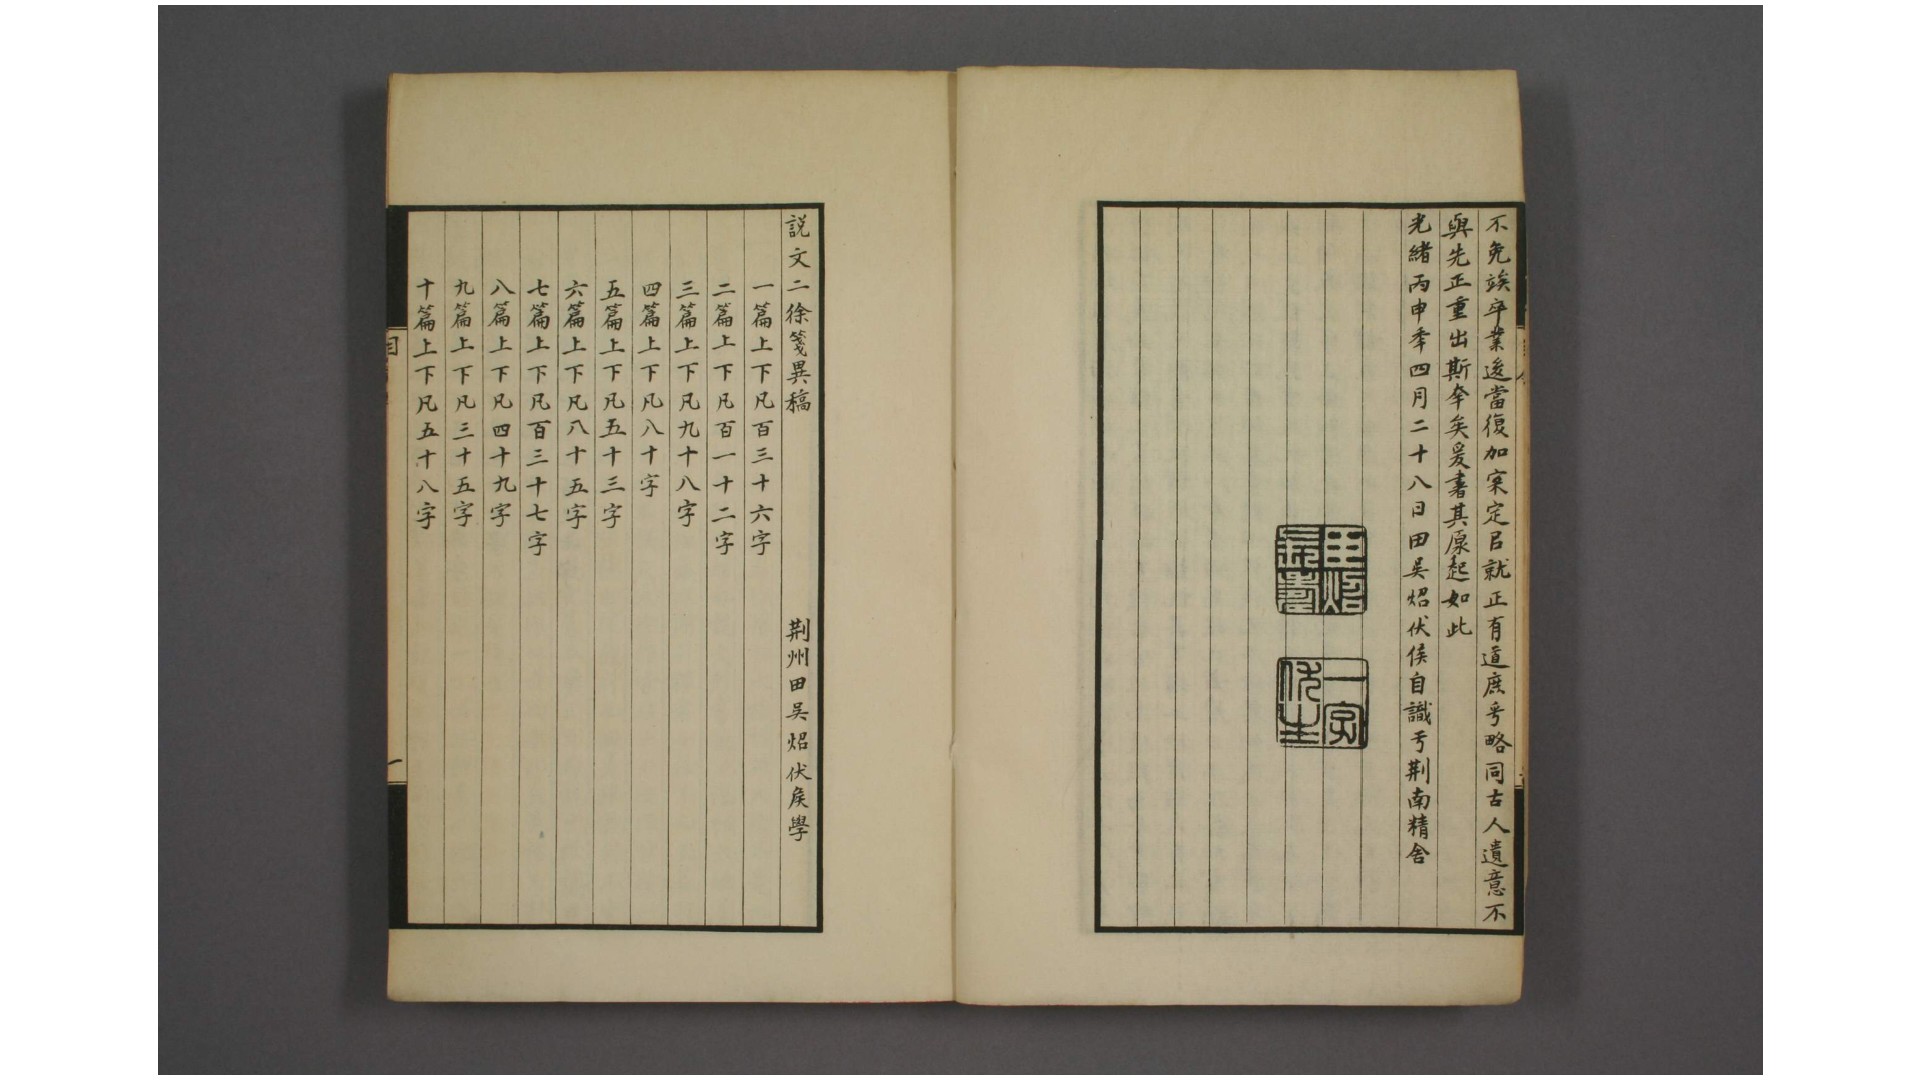 不免竢卒業後當復加案定㠯就正有道庶乎略同古人遺意不
與先正重出斯幸矣爰書其原起如此
光緒丙申季四月二十八日田吳炤伏侯自識于荆南精舍
一字伏生
説文二徐箋異稿 荆州田吳炤伏矦學
一篇上下凡百三十六字
二篇上下凡百一十二字
三篇上下凡九十八字
四篇上下凡八十字
五篇上下凡五十三字
六篇上下凡八十五字
七篇上下凡百三十七字
八篇上下凡四十九字
九篇上下凡三十五字
十篇上下凡五十八字
目
一